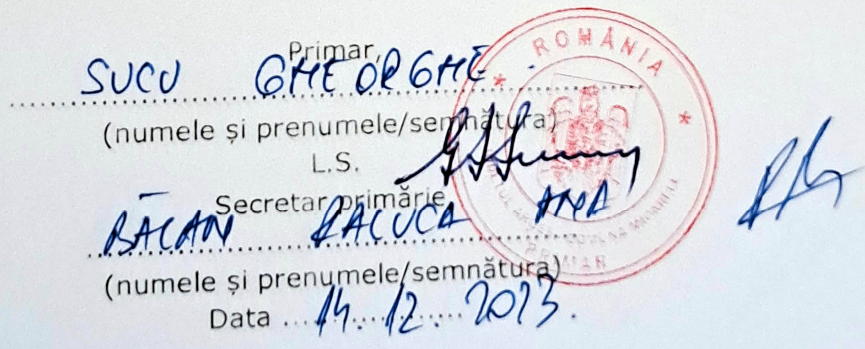 Primar,
SUCU GHEORGHE.
(numele și prenumele/semnătura)
L.S.
Secretar primărie
BĂCAN RALUCA ANA
(numele și prenumele/semnătura)
Data 14.12.2023.
* ROMÂNIA *
PRIMAR